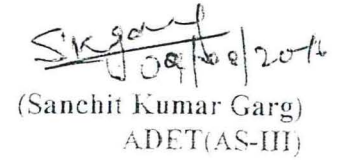 SKgarg
09/08/2016
(Sanchit Kumar Garg)
ADET(AS-III)